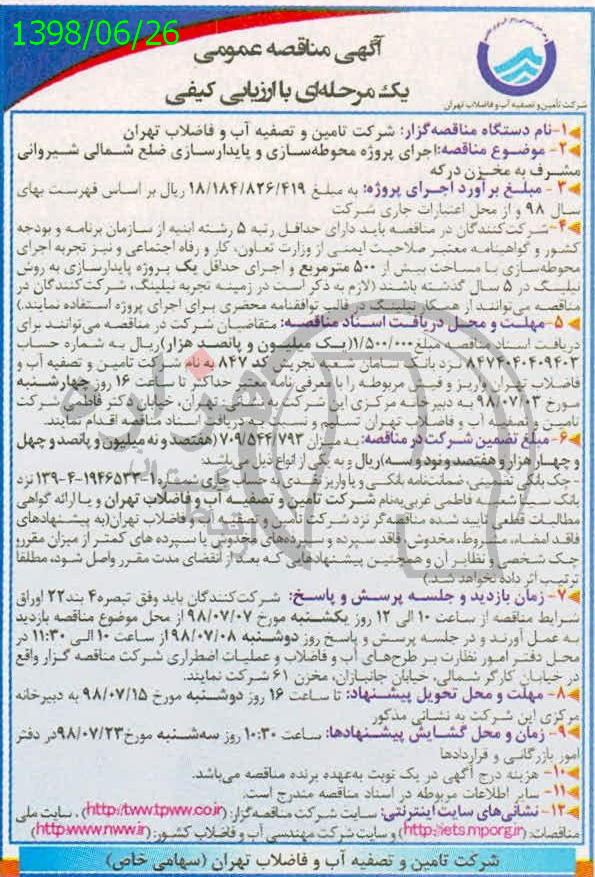 1398/06/26
آگهی مناقصه عمومی
یک مرحله‌ای با ارزیابی کیفی
شرکت تأمین و تصفیه آب و فاضلاب تهران
۱- نام دستگاه مناقصه‌گزار: شرکت تامین و تصفیه آب و فاضلاب تهران
۲- موضوع مناقصه: اجرای پروژه محوطه‌سازی و پایدارسازی ضلع شمالی شیروانی
مشرف به مخزن درکه
۳- مبلغ برآورد اجرای پروژه: به مبلغ ۱۸/۱۸۴/۸۲۶/۴۱۹ ریال بر اساس فهرست بهای
سال ۹۸ و از محل اعتبارات جاری شرکت
۴- شرکت‌کنندگان در مناقصه باید دارای حداقل رتبه ۵ رشته ابنیه از سازمان برنامه و بودجه
کشور و گواهینامه معتبر صلاحیت ایمنی از وزارت تعاون، کار و رفاه اجتماعی و نیز تجربه اجرای
محوطه‌سازی با مساحت بیش از ۵۰۰ مترمربع و اجرای حداقل یک پروژه پایدارسازی به روش
نیلینگ در ۵ سال گذشته باشند (لازم به ذکر است در زمینه تجربه نیلینگ، شرکت‌کنندگان در
مناقصه می‌توانند از همکار نیلینگ در قالب توافقنامه محضری برای اجرای پروژه استفاده نمایند.)
۵- مهلت و محل دریافت اسناد مناقصه: متقاضیان شرکت در مناقصه می‌توانند برای
دریافت اسناد مناقصه مبلغ ۱/۵۰۰/۰۰۰ (یک میلیون و پانصد هزار) ریال به شماره حساب
۸۴۷۴۰۴۰۴۰۹۴۰۳ نزد بانک سامان شعبه تجریش کد ۸۴۷ به نام شرکت تامین و تصفیه آب و
فاضلاب تهران واریز و فیش مربوطه را با معرفی‌نامه معتبر حداکثر تا ساعت ۱۶ روز چهارشنبه
مورخ ۹۸/۰۷/۰۳ به دبیرخانه مرکزی این شرکت به نشانی: تهران، خیابان دکتر فاطمی، شرکت
تامین و تصفیه آب و فاضلاب تهران تسلیم و نسبت به دریافت اسناد مناقصه اقدام نمایند.
۶- مبلغ تضمین شرکت در مناقصه: به میزان ۷۰۹/۵۴۴/۷۹۳ (هفتصد و نه میلیون و پانصد و چهل
و چهار هزار و هفتصد و نود و سه) ریال و به یکی از انواع ذیل می‌باشد:
- چک بانکی تضمینی، ضمانت‌نامه بانکی و یا واریز نقدی به حساب جاری شماره ۱-۱۹۴۶۵۳۳-۴-۱۳۹ نزد
بانک شعبه فاطمی غربی به‌نام شرکت تامین و تصفیه آب و فاضلاب تهران و یا ارائه گواهی
مطالبات قطعی تایید شده مناقصه‌گر نزد شرکت تامین و تصفیه آب و فاضلاب تهران (به پیشنهادهای
فاقد امضاء، مشروط، مخدوش، فاقد سپرده و سپرده‌های مخدوش یا سپرده های کمتر از میزان مقرر و
چک شخصی و نظایر آن و همچنین پیشنهادهایی که بعد از انقضای مدت مقرر واصل شود، مطلقا
ترتیب اثر داده نخواهد شد.)
۷- زمان بازدید و جلسه پرسش و پاسخ: شرکت‌کنندگان باید وفق تبصره ۴ بند ۲۲ اوراق
شرایط مناقصه از ساعت ۱۰ الی ۱۲ روز یکشنبه مورخ ۹۸/۰۷/۰۷ از محل موضوع مناقصه بازدید
به عمل آورند و در جلسه پرسش و پاسخ روز دوشنبه ۹۸/۰۷/۰۸ از ساعت ۱۰ الی ۱۱:۳۰ در
محل دفتر امور نظارت بر طرح‌های آب و فاضلاب و عملیات اضطراری شرکت مناقصه گزار واقع
در خیابان کارگر شمالی، خیابان جانبازان، مخزن ۶۱ شرکت نمایند.
۸- مهلت و محل تحویل پیشنهاد: تا ساعت ۱۶ روز دوشنبه مورخ ۹۸/۰۷/۱۵ به دبیرخانه
مرکزی این شرکت به نشانی مذکور
۹- زمان و محل گشایش پیشنهادها: ساعت ۱۰:۳۰ روز سه‌شنبه مورخ ۹۸/۰۷/۲۳ در دفتر
امور بازرگانی و قراردادها
۱۰- هزینه درج آگهی در یک نوبت به‌عهده برنده مناقصه می‌باشد.
۱۱- سایر اطلاعات مربوطه در اسناد مناقصه مندرج است.
۱۲- نشانی‌های سایت اینترنتی: سایت شرکت مناقصه‌گزار: (http://tww.tpww.co.ir)، سایت ملی
مناقصات: (http://iets.mporg.ir) و سایت شرکت مهندسی آب و فاضلاب کشور: (http:www.nww.ir)
شرکت تامین و تصفیه آب و فاضلاب تهران (سهامی خاص)